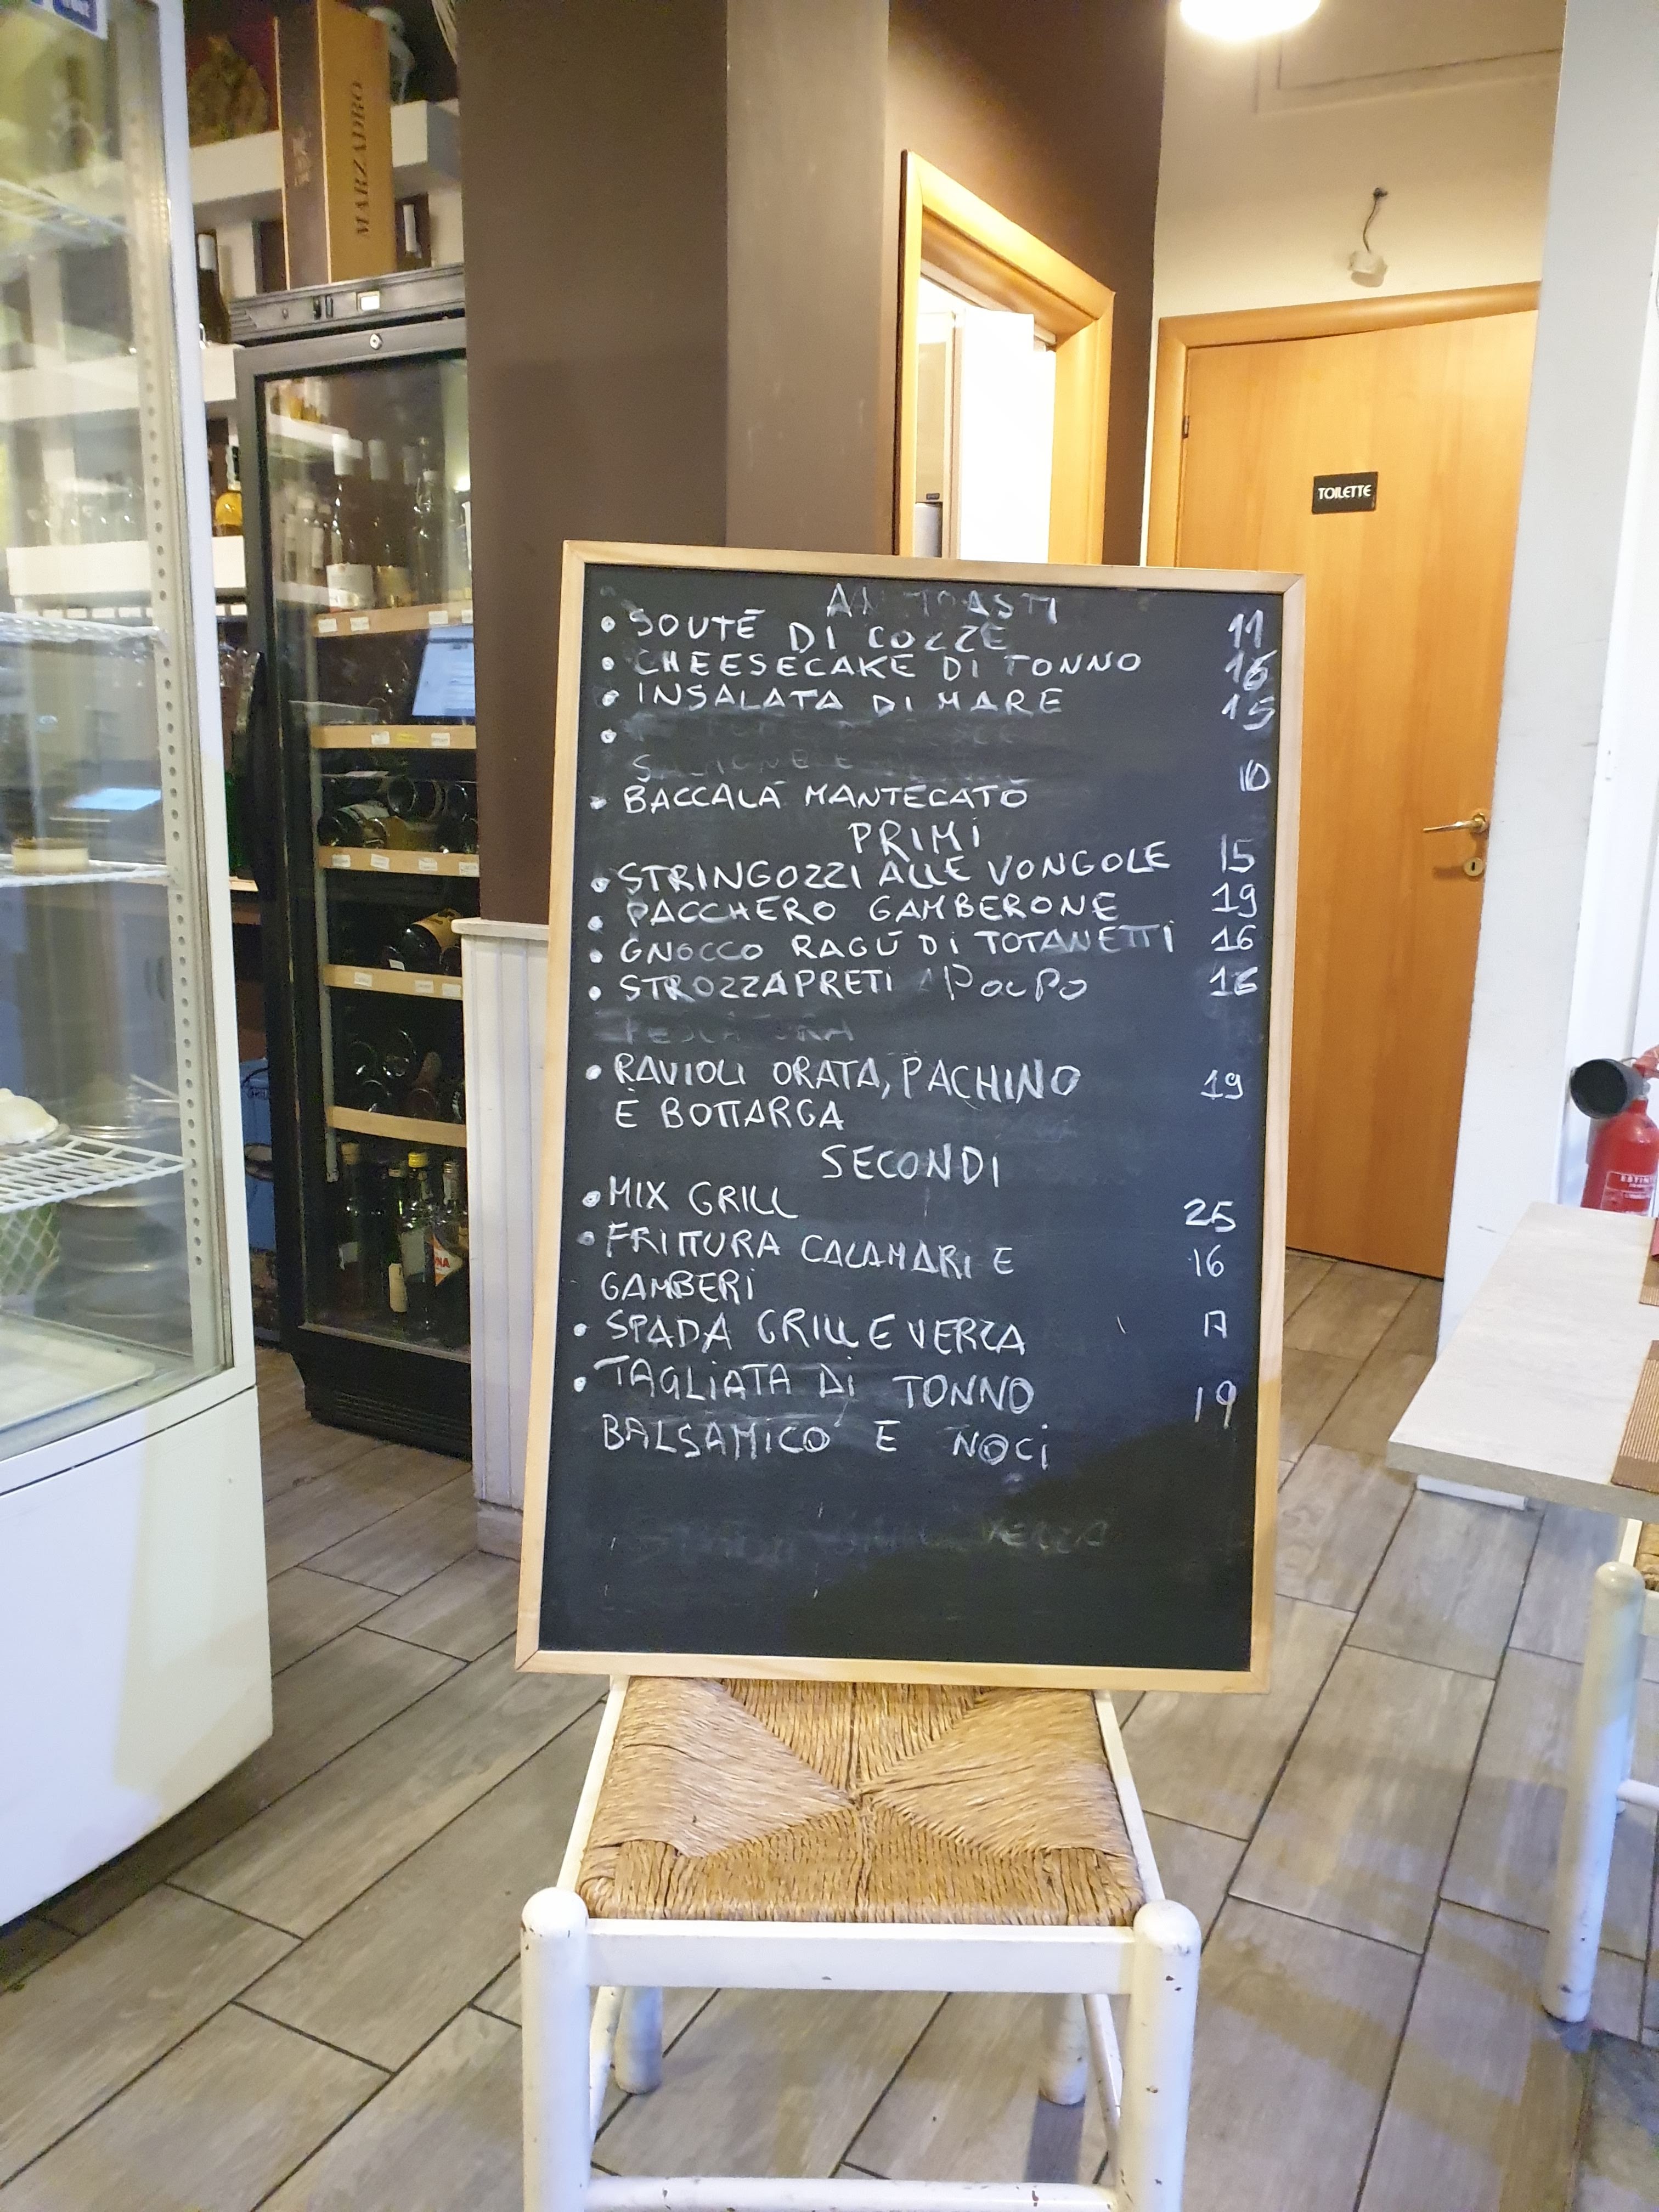 MARZADRO
TOILETTE
SOUTÉ DI COZZE 11
CHEESECAKE DI TONNO 16
INSALATA DI MARE 15
10
BACCALÁ MANTECATO
PRIMI
STRINGOZZI ALLE VONGOLE 15
PACCHERO GAMBERONE 19
GNOCCO RAGÚ DI TOTANETTI 16
STROZZAPRETI POLPO 16
RAVIOLI ORATA, PACHINO 19
E BOTTARGA
SECONDI
MIX GRILL 25
FRITTURA CALAMARI E 16
GAMBERI
SPADA GRILL E VERZA 17
TAGLIATA DI TONNO 19
BALSAMICO E NOCI
VERZA